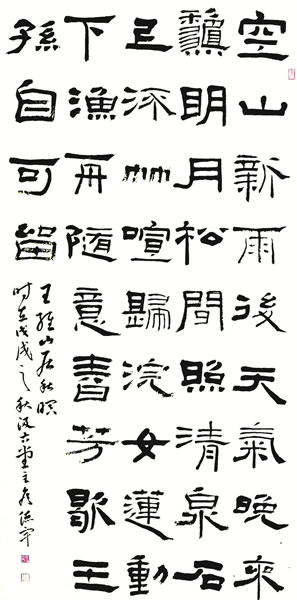 空山新雨後天氣晚來
龝明月松間照清泉石
上流竹喧歸浣女蓮動
下漁舟隨意春芳歇王
孫自可留
王維山居秋暝
时在戊戌之秋汲古堂主